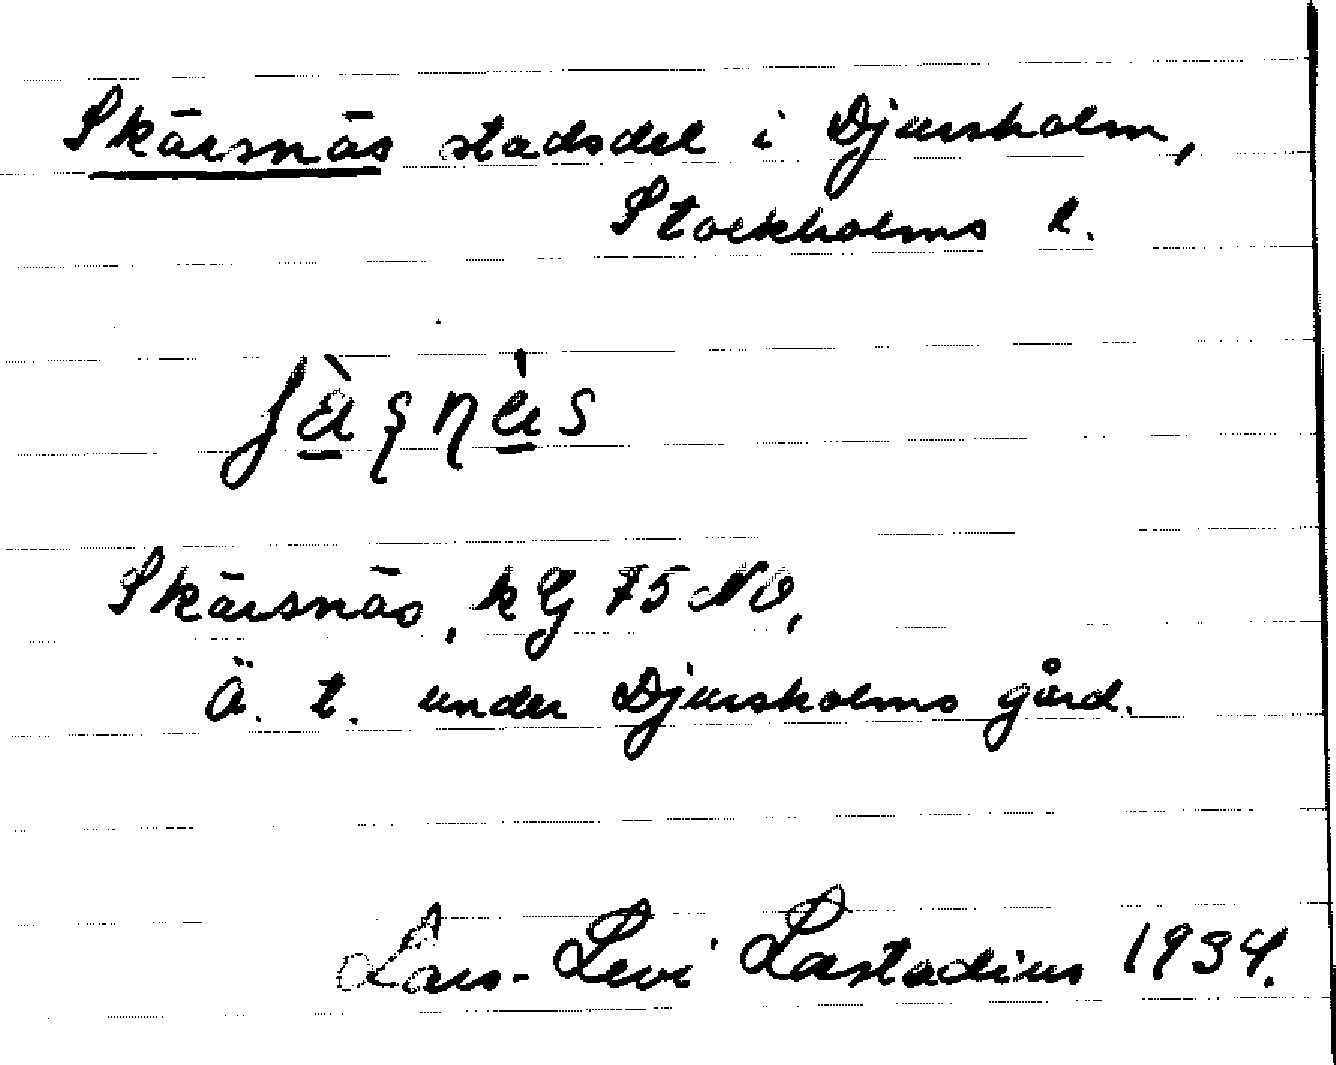 Skärsnäs stadsdel i Djursholm,
Stockholms l.
Skärsnäs, k G 75 NO,
Ä. t. under Djursholms gård.
Lars-Levi Læstadius 1934.